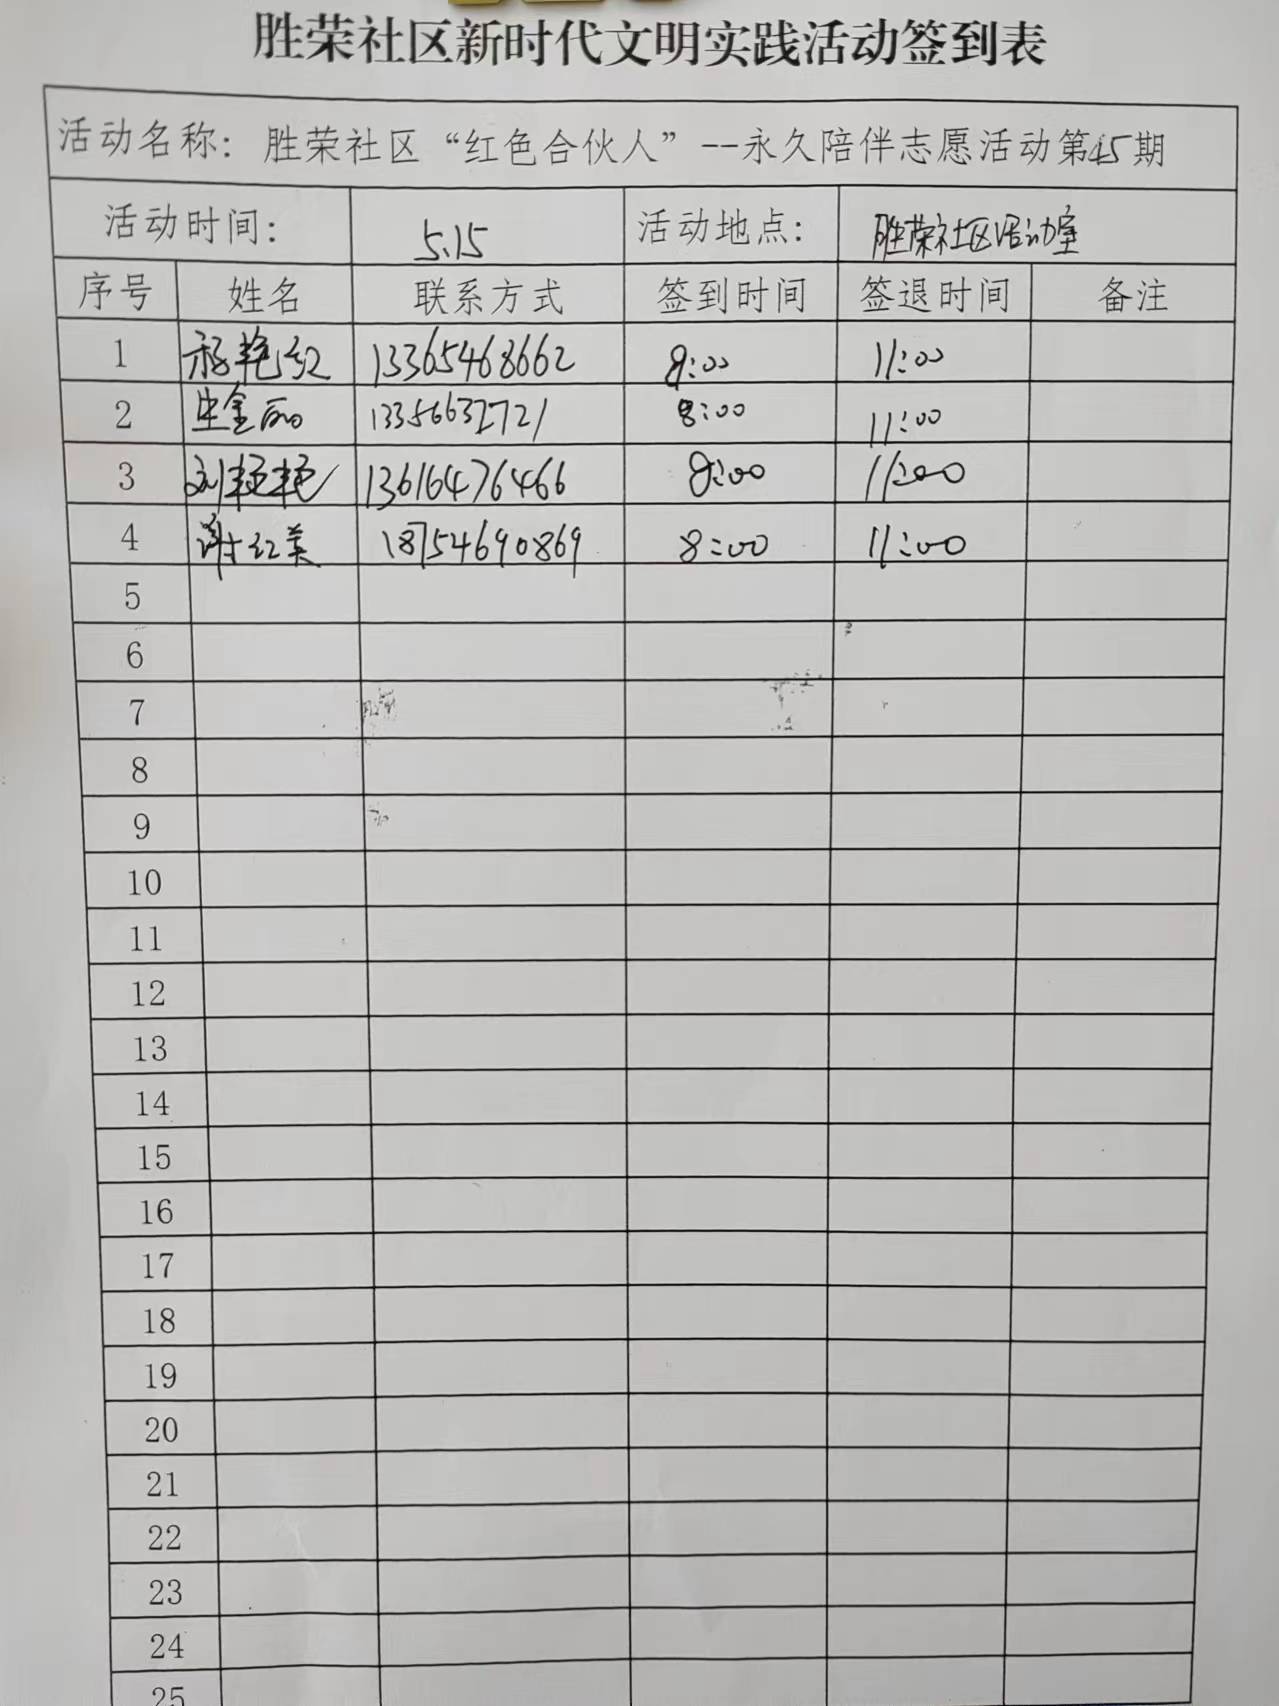 胜荣社区新时代文明实践活动签到表
活动名称：胜荣社区“红色合伙人”--永久陪伴志愿活动第45期
活动时间： 5.15 活动地点： 胜荣社区活动室
序号 姓名 联系方式 签到时间 签退时间 备注
1 艳红 13365468662 8:00 11:00
2 生金丽 13356632721 8:00 11:00
3 刘艳艳 13616476466 8:00 11:00
4 谢红美 18754690869 8:00 11:00
5
6
7
8
9
10
11
12
13
14
15
16
17
18
19
20
21
22
23
24
25